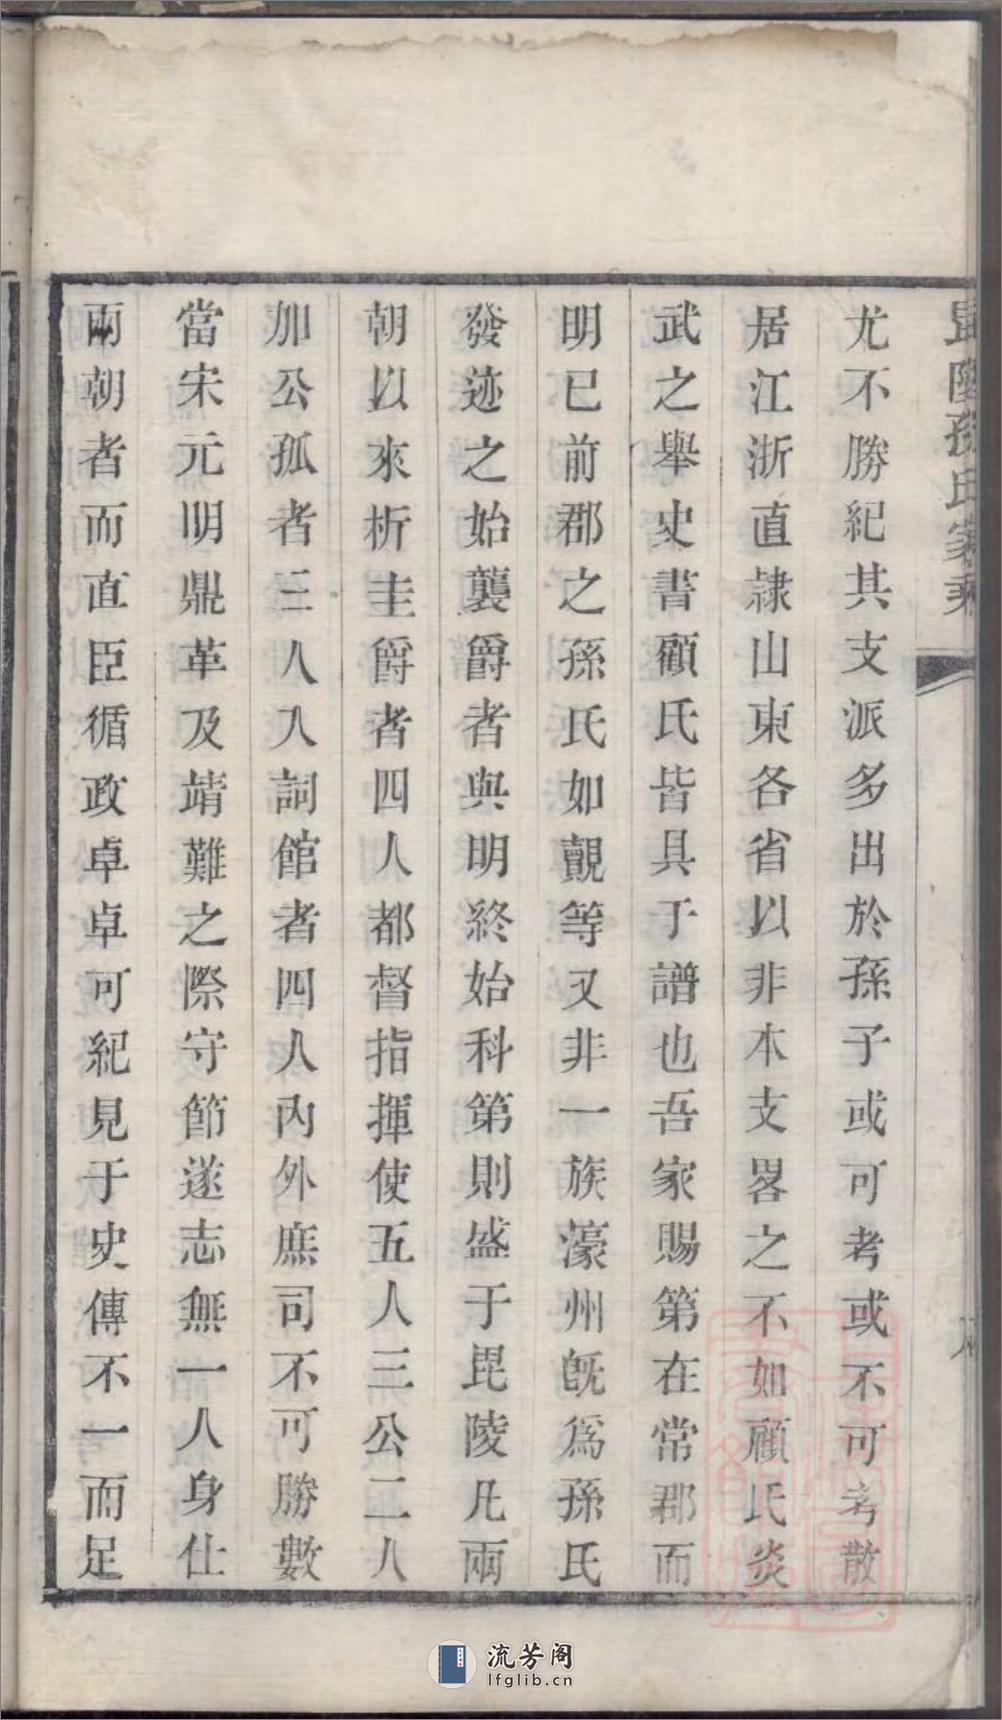 毘陵孫氏家乘
尤不勝紀其支派多出於孫子或可考或不可考散
居江浙直隷山東各省以非本支畧之不如顧氏炎
武之舉史書顧氏皆具于譜也吾家賜第在常郡而
明已前郡之孫氏如覿等又非一族濠州旣爲孫氏
發迹之始襲爵者與明終始科第則盛于毘陵凡兩
朝以來析圭爵者四人都督指揮使五人三公二人
加公孤者三人入詞館者四人內外庶司不可勝數
當宋元明鼎革及靖難之際守節遂志無一人身仕
兩朝者而直臣循政卓卓可紀見于史傳不一而足
流芳阁
lfglib.cn